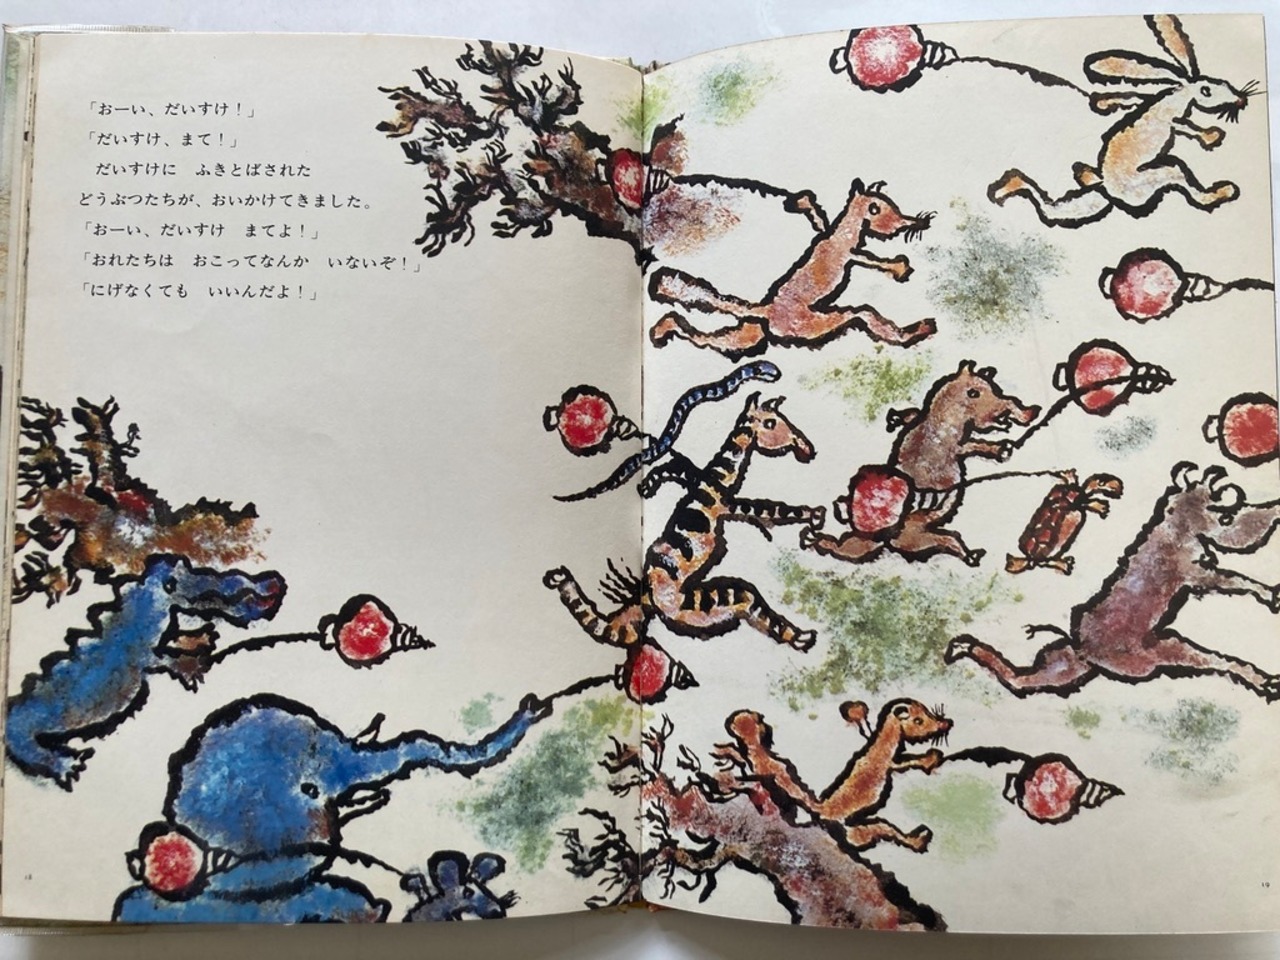 「おーい、だいすけ！」
「だいすけ、まて！」
だいすけに　ふきとばされた
どうぶつたちが、おいかけてきました。
「おーい、だいすけ　まてよ！」
「おれたちは　おこってなんか　いないぞ！」
「にげなくても　いいんだよ！」
18
19